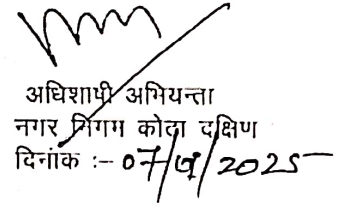 अधिशाषी अभियन्ता
नगर निगम कोटा दक्षिण
दिनांक :- 07/ /2025